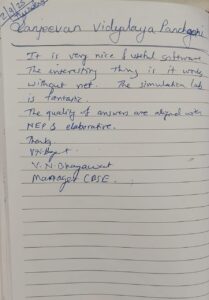 2/9/25
Sanjeevan Vidyalaya Panchgani
It is very nice & useful software.
The interesting thing is it works
without net. The simulation lab
is fantastic.
The quality of answers are aligned with
NEP & elaborative.
Thanks
V. N. Bhagawat
Manager CBSE.